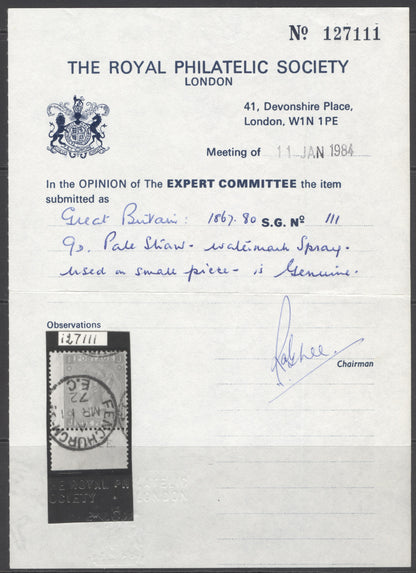 Nº 127111
THE ROYAL PHILATELIC SOCIETY
LONDON
41, Devonshire Place,
London, W1N 1PE
Meeting of 11 JAN 1984
In the OPINION of The EXPERT COMMITTEE the item
submitted as
Great Britain: 1867.80 S.G. Nº 111
9d. Pale Straw - watermark Spray -
used on small piece - is Genuine.
Observations
127111
Chairman
FENCHURCH
MR
72
E.C.
THE ROYAL PHILATELIC
SOCIETY LONDON